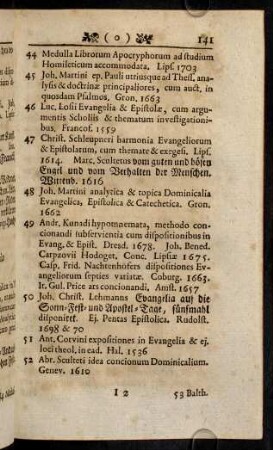 ( o ) 141
44 Medulla Librorum Apocryphorum ad studium
Homileticum accommodata. Lips. 1703
45 Joh. Martini ep. Pauli utriusque ad Thess. ana-
lysis & doctrinæ principaliores, cum auct. in
quosdam Psalmos. Gron. 1663
46 Luc. Losii Evangelia & Epistolæ, cum argu-
mentis Scholiis & thematum investigationi-
bus. Francof. 1559
47 Christ. Schleupneri harmonia Evangeliorum
& Epistolarum, cum themate & exegesi. Lips.
1614. Marc. Scultetus vom guten und bösen
Engel und vom Verhalten der Menschen.
Wittenb. 1616
48 Joh. Martini analytica & topica Dominicalia
Evangelica, Epistolica & Catechetica. Gron.
1662
49 Andr. Kunadi hypomnemata, methodo con-
cionandi subservientia cum dispositionibus in
Evang. & Epist. Dresd. 1678. Joh. Bened.
Carpzovii Hodoget. Conc. Lipsiæ 1675.
Casp. Frid. Nachtenhöfers dispositiones Ev-
angeliorum septies variatæ. Coburg. 1663.
It. Gul. Price ars concionandi. Amst. 1657
50 Joh. Christ. Lehmanns Evangelia auf die
Sonn-Fest- und Apostel-Tage, fünfmahl
disponiret. Ej. Pentas Epistolica. Rudolst.
1698 & 70
51 Ant. Corvini expositiones in Evangelia & ej.
loci theol. in ead. Hal. 1536
52 Abr. Sculteti idea concionum Dominicalium.
Genev. 1610
I 2 53 Balth.